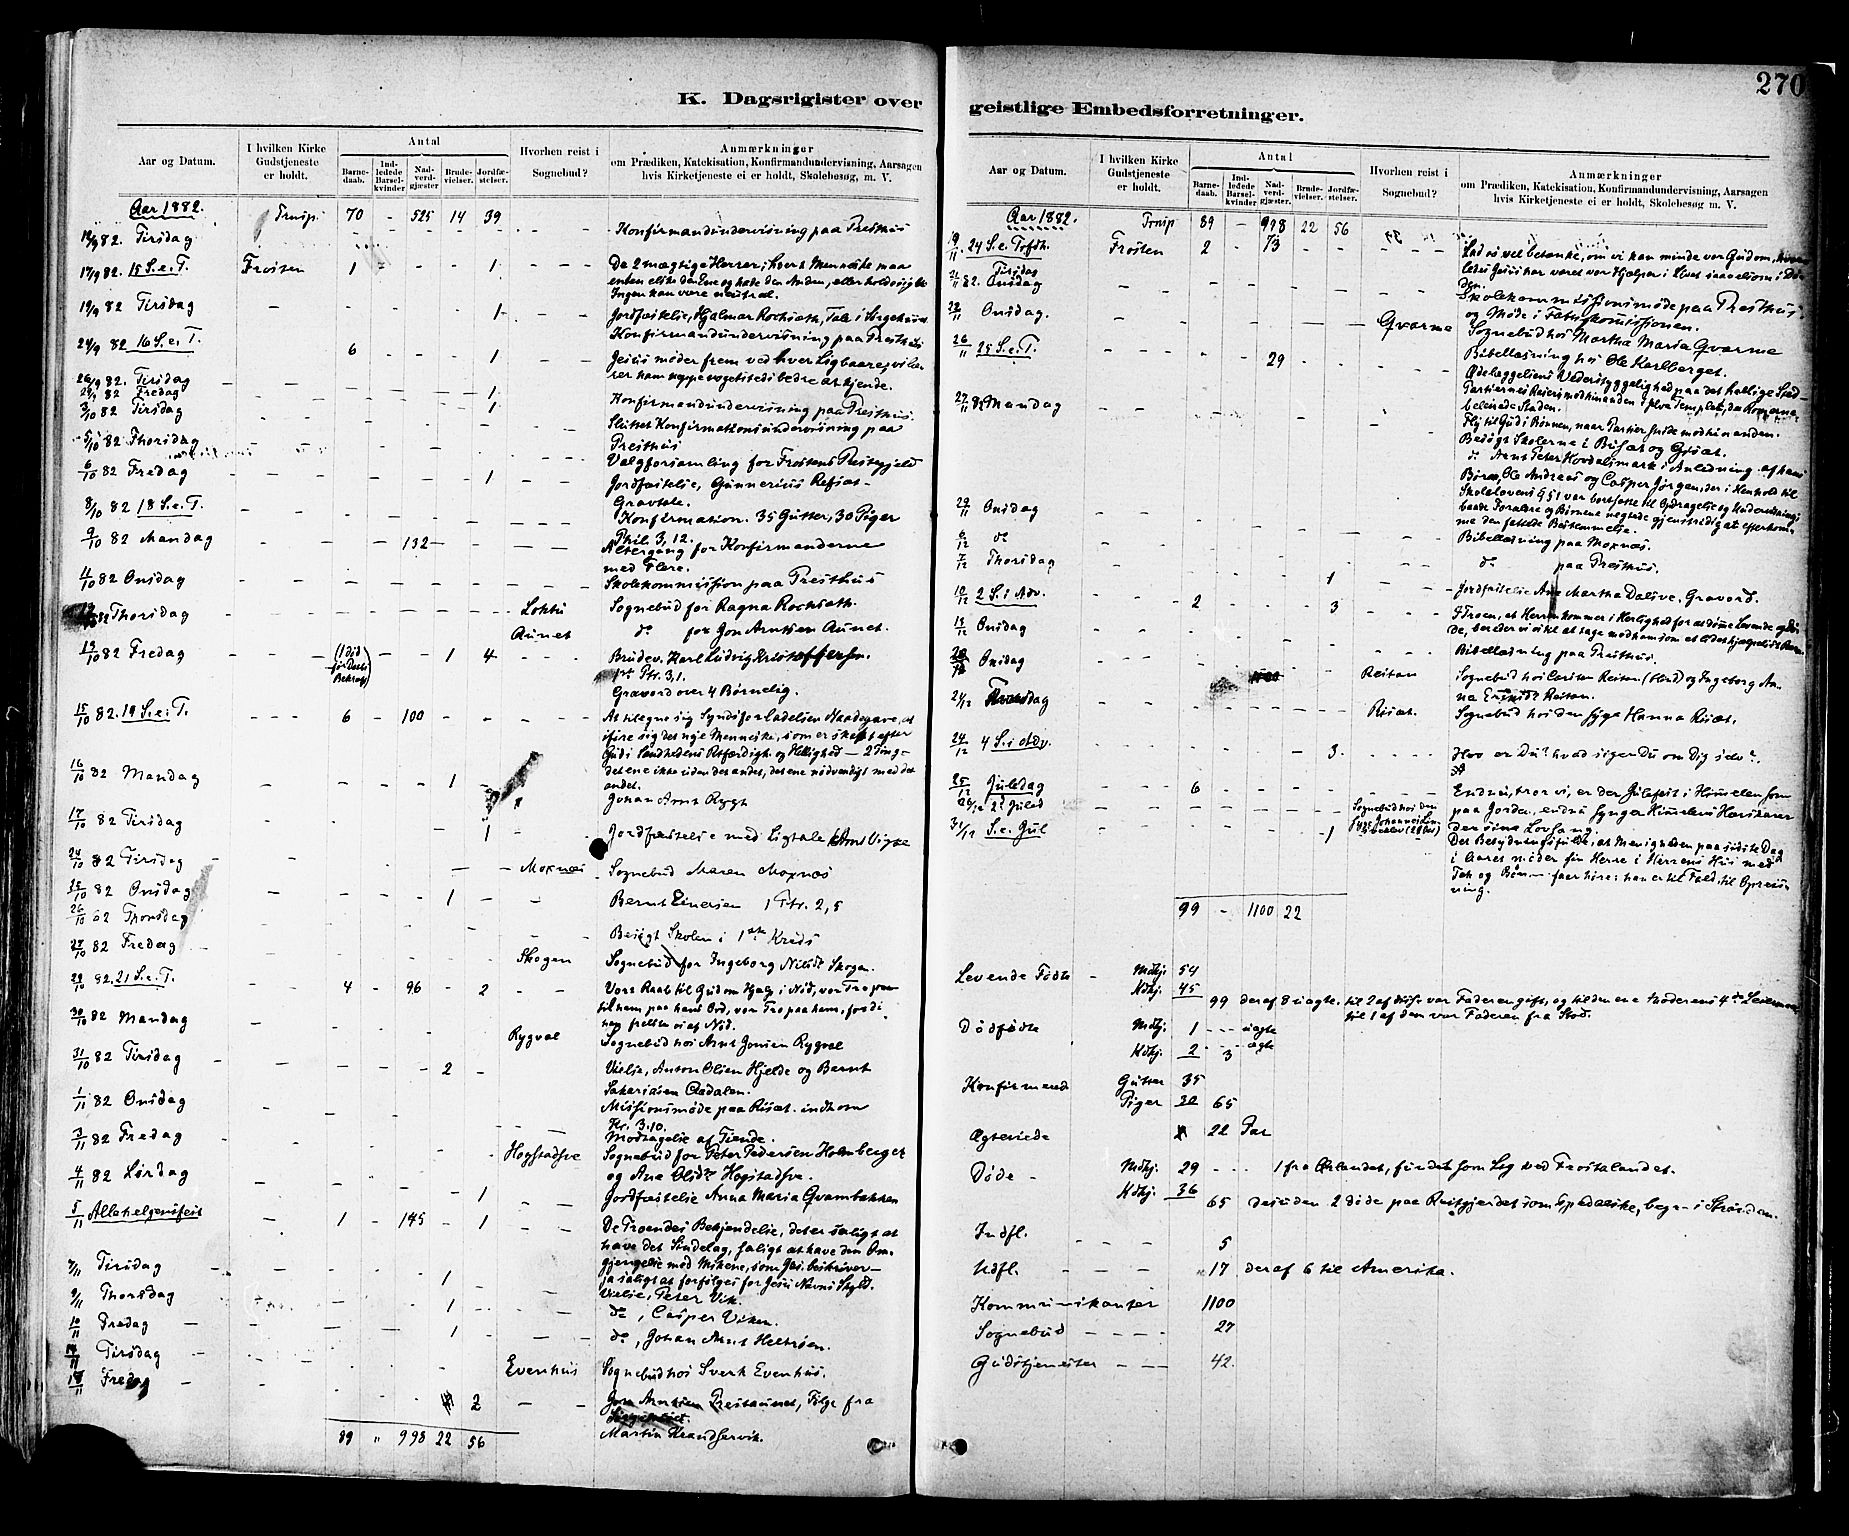 K. Dagsrigister over
Aar og Datum.
I hvilken Kirke Gudstjeneste er holdt.
Antal
Barne-daab.
Ind-ledede Barsel-kvinder
Nad-verd-gjæster
Brude-vielser.
Jordfæ-stelser.
Hvorhen reist i Sognebud?
Anmærkninger
om Prædiken, Katekisation, Konfirmandundervisning, Aarsagen
hvis Kirketjeneste ei er holdt, Skolebesøg, m. V.
Aar 1882. Trnsp. 70 - 525 14 39
82. Tirsdag Konfirmandundervisning paa Presthus
17/9 82. 15 S.e.T. Frosten 1 - - - 1 De 2 mægtige Herrer; hvert Menneske maa
enten elske den Ene og hate den Anden, eller holde sig
Ingen kan være neutral.
19/9 82 Tirsdag 1 Jordfæstelse, Hjalmar Rochsæth, Tale i Sørgehuset
Konfirmandundervisning paa Presthus
24/9 82 16 S.e.T. 6 1 Jesus møder frem ved hver Ligbaare
26/9 82. Tirsdag
82 Fredag 1
3/10 82 Tirsdag 1 Konfirmandundervisning paa Presthus.
Sluttet Konfirmationsundervisning paa
5/10 82 Thorsdag Presthus
Valgforsamling for Frostens Prestegjeld
6/10 82 Fredag 1 Jordfæstelse, Gunnerius Refsæt-
Gravtale.
8/10 82 18 S.e.T. Konfirmation. 35 Gutter, 30 Piger
Phil. 3, 12.
9/10 82 Mandag 132 Altergang for Konfirmanderne
med Flere.
11/10 82 Onsdag Skolekommission paa Presthus
82 Thorsdag Sognebud for Ragna Rochsæth.
Aunet do for Jon Arntsen Aunet.
13/10 82 Fredag 1 4 Brudev. Karl Ludvig Kristoffersen.
1ste Ptr. 3,1.
Gravord over 4 Børnelig.
15/10 82. 19 S.e.T. 6 - 100 At tilegne sig Syndsforladelsen Naadegave, at
iføre sig det nye Menneske, som er skabt efter
Guds Sandhedens Retfærdigh. og Hellighed - 2 Ting -
det ene ikke uden det andet, det ene nødvendigt med det
andet.
16/10 82 Mandag 1 Johan Arnt Rygt
17/10 82 Tirsdag 1 Jordfæstelse med Ligtale
24/10 82 Tirsdag Moxnæs Sognebud Maren Moxnæs
25/10 82 Onsdag 1 Bernt Einersen 1 Ptr. 2, 5
26/10 82 Thorsdag Besøgt Skolen i 1ste Kreds
27/10 82 Fredag Skogen Sognebud for Ingeborg Nilsdt Skogen.
29/10 82. 21 S.e.T. 4 - 96 - 2 Vort Raab til Gud om Hjælp i Nød, vor Tro
til ham paa hans Ord, vor Tro paa ham, fordi
frelstes vi af Nød.
30/10 82 Mandag Rygval Sognebud hos Arnt Jonsen Rygval
31/10 82 Tirsdag 2 Vielse, Anton Olsen Hjelde og Bernt
Sakariasen Aadalen.
1/11 82 Onsdag Missionsmøde paa Risæt. indkom
Kr. 3.10.
3/11 82 Fredag Modtagelse af Tiende.
4/11 82 Lørdag Hogstadsve Sognebud for Peter Pedersen Holmberget
og Ane Olsdtr Hogstadsve.
1 Jordfæstelse Anna Maria Qvambakken
5/11 Allehelgensfest 1 - 145 - 1 De Troendes Bekjendelse, det er saligt at
have det Sindelag, saligt at have den Om-
gjængelse med Mskene, som
ja saligt at forfølges for Jesu Navns Skyld.
7/11 Tirsdag 1 Vielse, Peter Vik.
9/11 Thorsdag 1 do, Casper Viken.
10/11 Fredag 1 do, Johan Arnt Heltrøen.
14/11 Tirsdag Evenhus Sognebud hos Sverk Evenhus.
Fredag 2 Jon Arntsen Prestaunet, Følge fra
Martin
89 " 998 22 56
270
geistlige Embedsforretninger.
Aar og Datum.
I hvilken Kirke Gudstjeneste er holdt.
Antal
Barne-daab.
Ind-ledede Barsel-kvinder
Nad-verd-gjæster.
Brude-vielser.
Jordfæ-stelser.
Hvorhen reist i Sognebud?
Anmærkninger
om Prædiken, Katekisation, Konfirmandundervisning, Aarsagen
hvis Kirketjeneste ei er holdt, Skolebesøg m. V.
Aar 1882. Trnsp 89 - 998 22 56
19/11. 24 S.e. Trefdh. Frosten 2 - 73 Lad os vel betænke, om vi kan minde vor Gud om,
ledes Jesus har været vor Hjælper i Livet saavelsom i Dø-
den.
Tirsdag
82. Onsdag Skolekommissionsmøde paa Presthus
og Møde i Fattigkomissionen.
22/11 Onsdag. Qvarme Sognebud hos Martha Maria Qvarme
Bibellæsning hos Ole Karlberget.
26/11 25 S.e.T. 29 Ødelæggelsens Vederstyggelighed paa det hellige Sted-
Partiernes Rasen mod hinanden i selve Templet, da Romerne
beleirede Staden.
Fly til Gud i Bønnen, naar Partier gnide mod hinanden.
27/11 82 Mandag Besøgt Skolerne i
do Arnt Peter Hovdalsmark i Anledning af hans
Børn, Ole Andreas og Casper Jørgen, der i Henhold til
Skolelovens § 51 var bortsatte til Opdragelse og Underviisning;
baade Forældre og Børnene negtede gjenstridig at efterkom-
me den fattede Bestemmelse.
29/11 Onsdag Bibellæsning paa Moxnæs.
6/12 do do paa Presthus.
7/12 Thorsdag 1 Jordfæstelse Ane Martha Dalsve, Gravord.
10/12 2 S. i Adv. 2 3 I Troen, at Herren kommer i Herlighed for at dømme Levende og Dø-
de, bereder vi os
13/12 Onsdag Bibellæsning paa Presthus.
Onsdag Reitan Sognebud hos Carsten Reitan (Hlad) og Ingeborg An-
na Reitan.
Risæt. Sognebud hos den syge Hanna Risæt.
24/12 4 S. i Adv. 3 Hvo er Du? hvad siger Du om Dig selv?
25/12 Juledag 6 Endnu, tror vi, er der Julefest i Himmelen som
26/12 2d Juled paa Jorden, endnu synger Himlens Hærskarer
Sognebud hos den syge Johannes
31/12 S.e. Jul 1 der sine Lovsang.
Det Betydningsfulde, at Menigheden paa sidste Dag
i Aaret møder sin Herre i Herrens Hus med
Tak og Bøn - faar høre: han er til Fald, til Opreis-
ning.
99 - 1100 22
Levende Fødte - Mdkj. 54
Kdkj. 45
99 deraf 8 uægte. til 2 af disse var Faderen gift, og til den ene Moderens 4de Leiermaal
til 1 af dem var Faderen fra Stod.
Dødfødte Mdkj. 1 - - - uægte
Kdkj. 2 3 ægte
Konfirmerede Gutter 35
Piger 30 65
Ægteviede 22 Par
Døde - Mdkj. 29 - - - 1 fra Ørlandet, fundet som Lig ved Frostalandet.
Kdkj. 36
65 desuden 2 døde paa Reitgjerdet som Spedalske, begr. i Strinden.
Indfl. - - - 5
Udfl. - - - 17 deraf 6 til Amerika.
Kommunikanter 1100
Sognebud - - - - 27
Gudstjenester - - - 42.